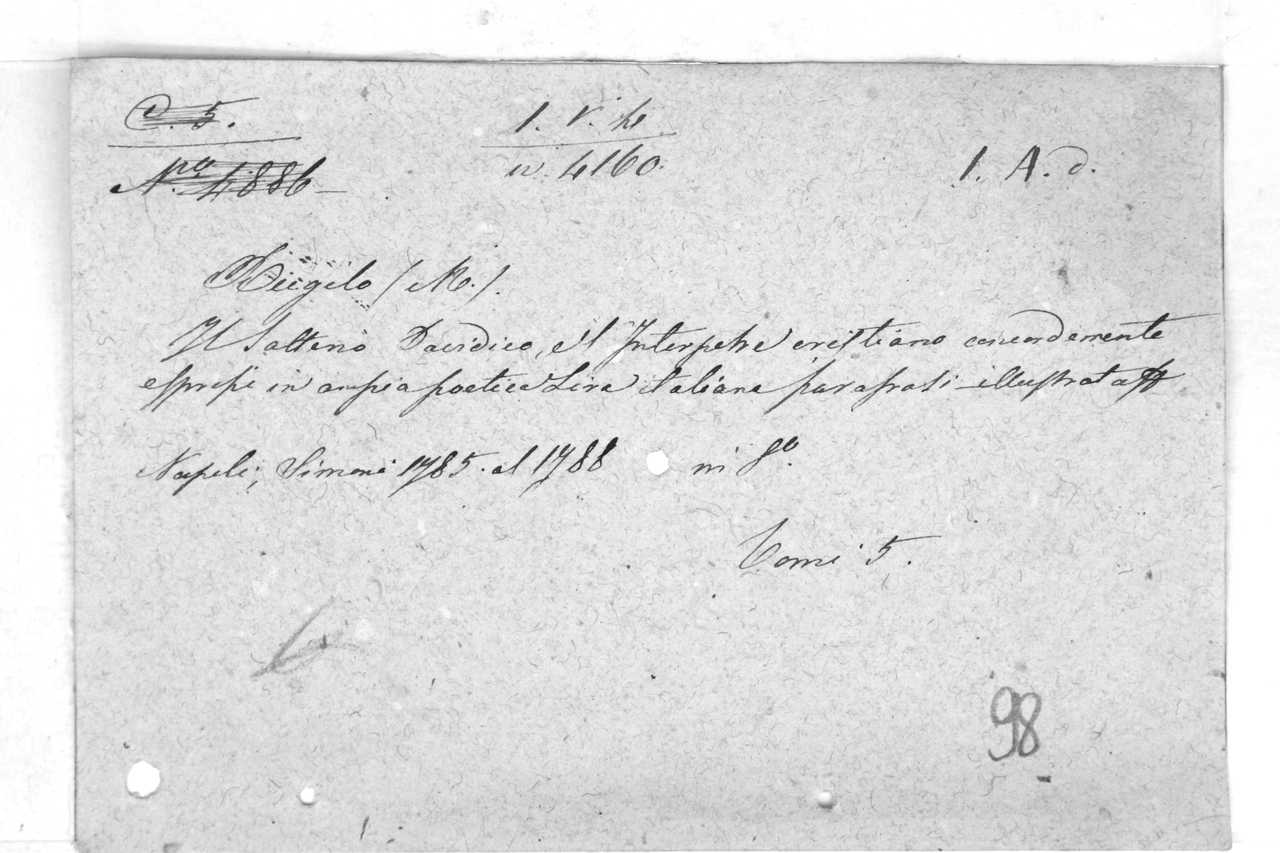 C. 5.
1. V. h
Nro 4886
n. 4160.
1. A. d.
(M.)
Il Salterio Davidico, e'l Interpetre cristiano concordemente
espressi in ampia poetica Lira italiana parafrasi illustrata
Napoli, Simoni 1785. al 1788 in 8o.
Tomi 5.
98